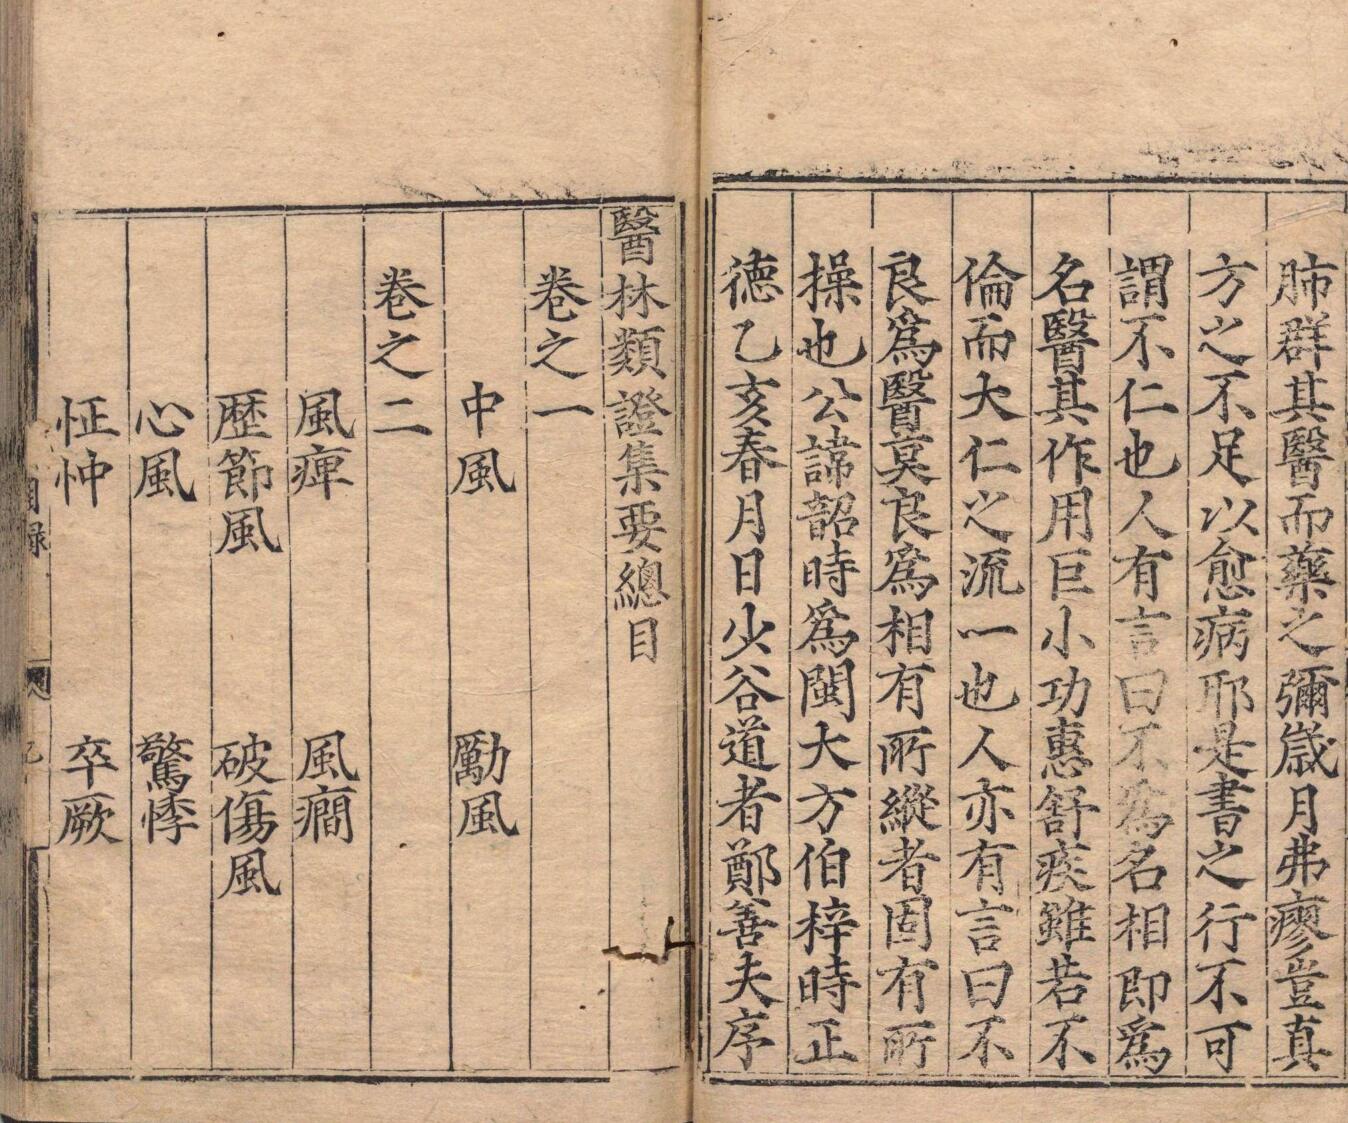 肺群其醫而藥之彌歲月弗瘳豈真
方之不足以愈病耶是書之行不可
謂不仁也人有言曰不爲名相即爲
名醫其作用巨小功惠舒疾雖若不
倫而大仁之流一也人亦有言曰不
良爲醫莫良爲相有所縱者固有所
操也公諱韶時爲閩大方伯梓時正
德乙亥春月日少谷道者鄭善夫序
醫林類證集要總目
卷之一
中風 勵風
卷之二
風痺 風癎
歷節風 破傷風
心風 驚悸
怔忡 卒厥
目録